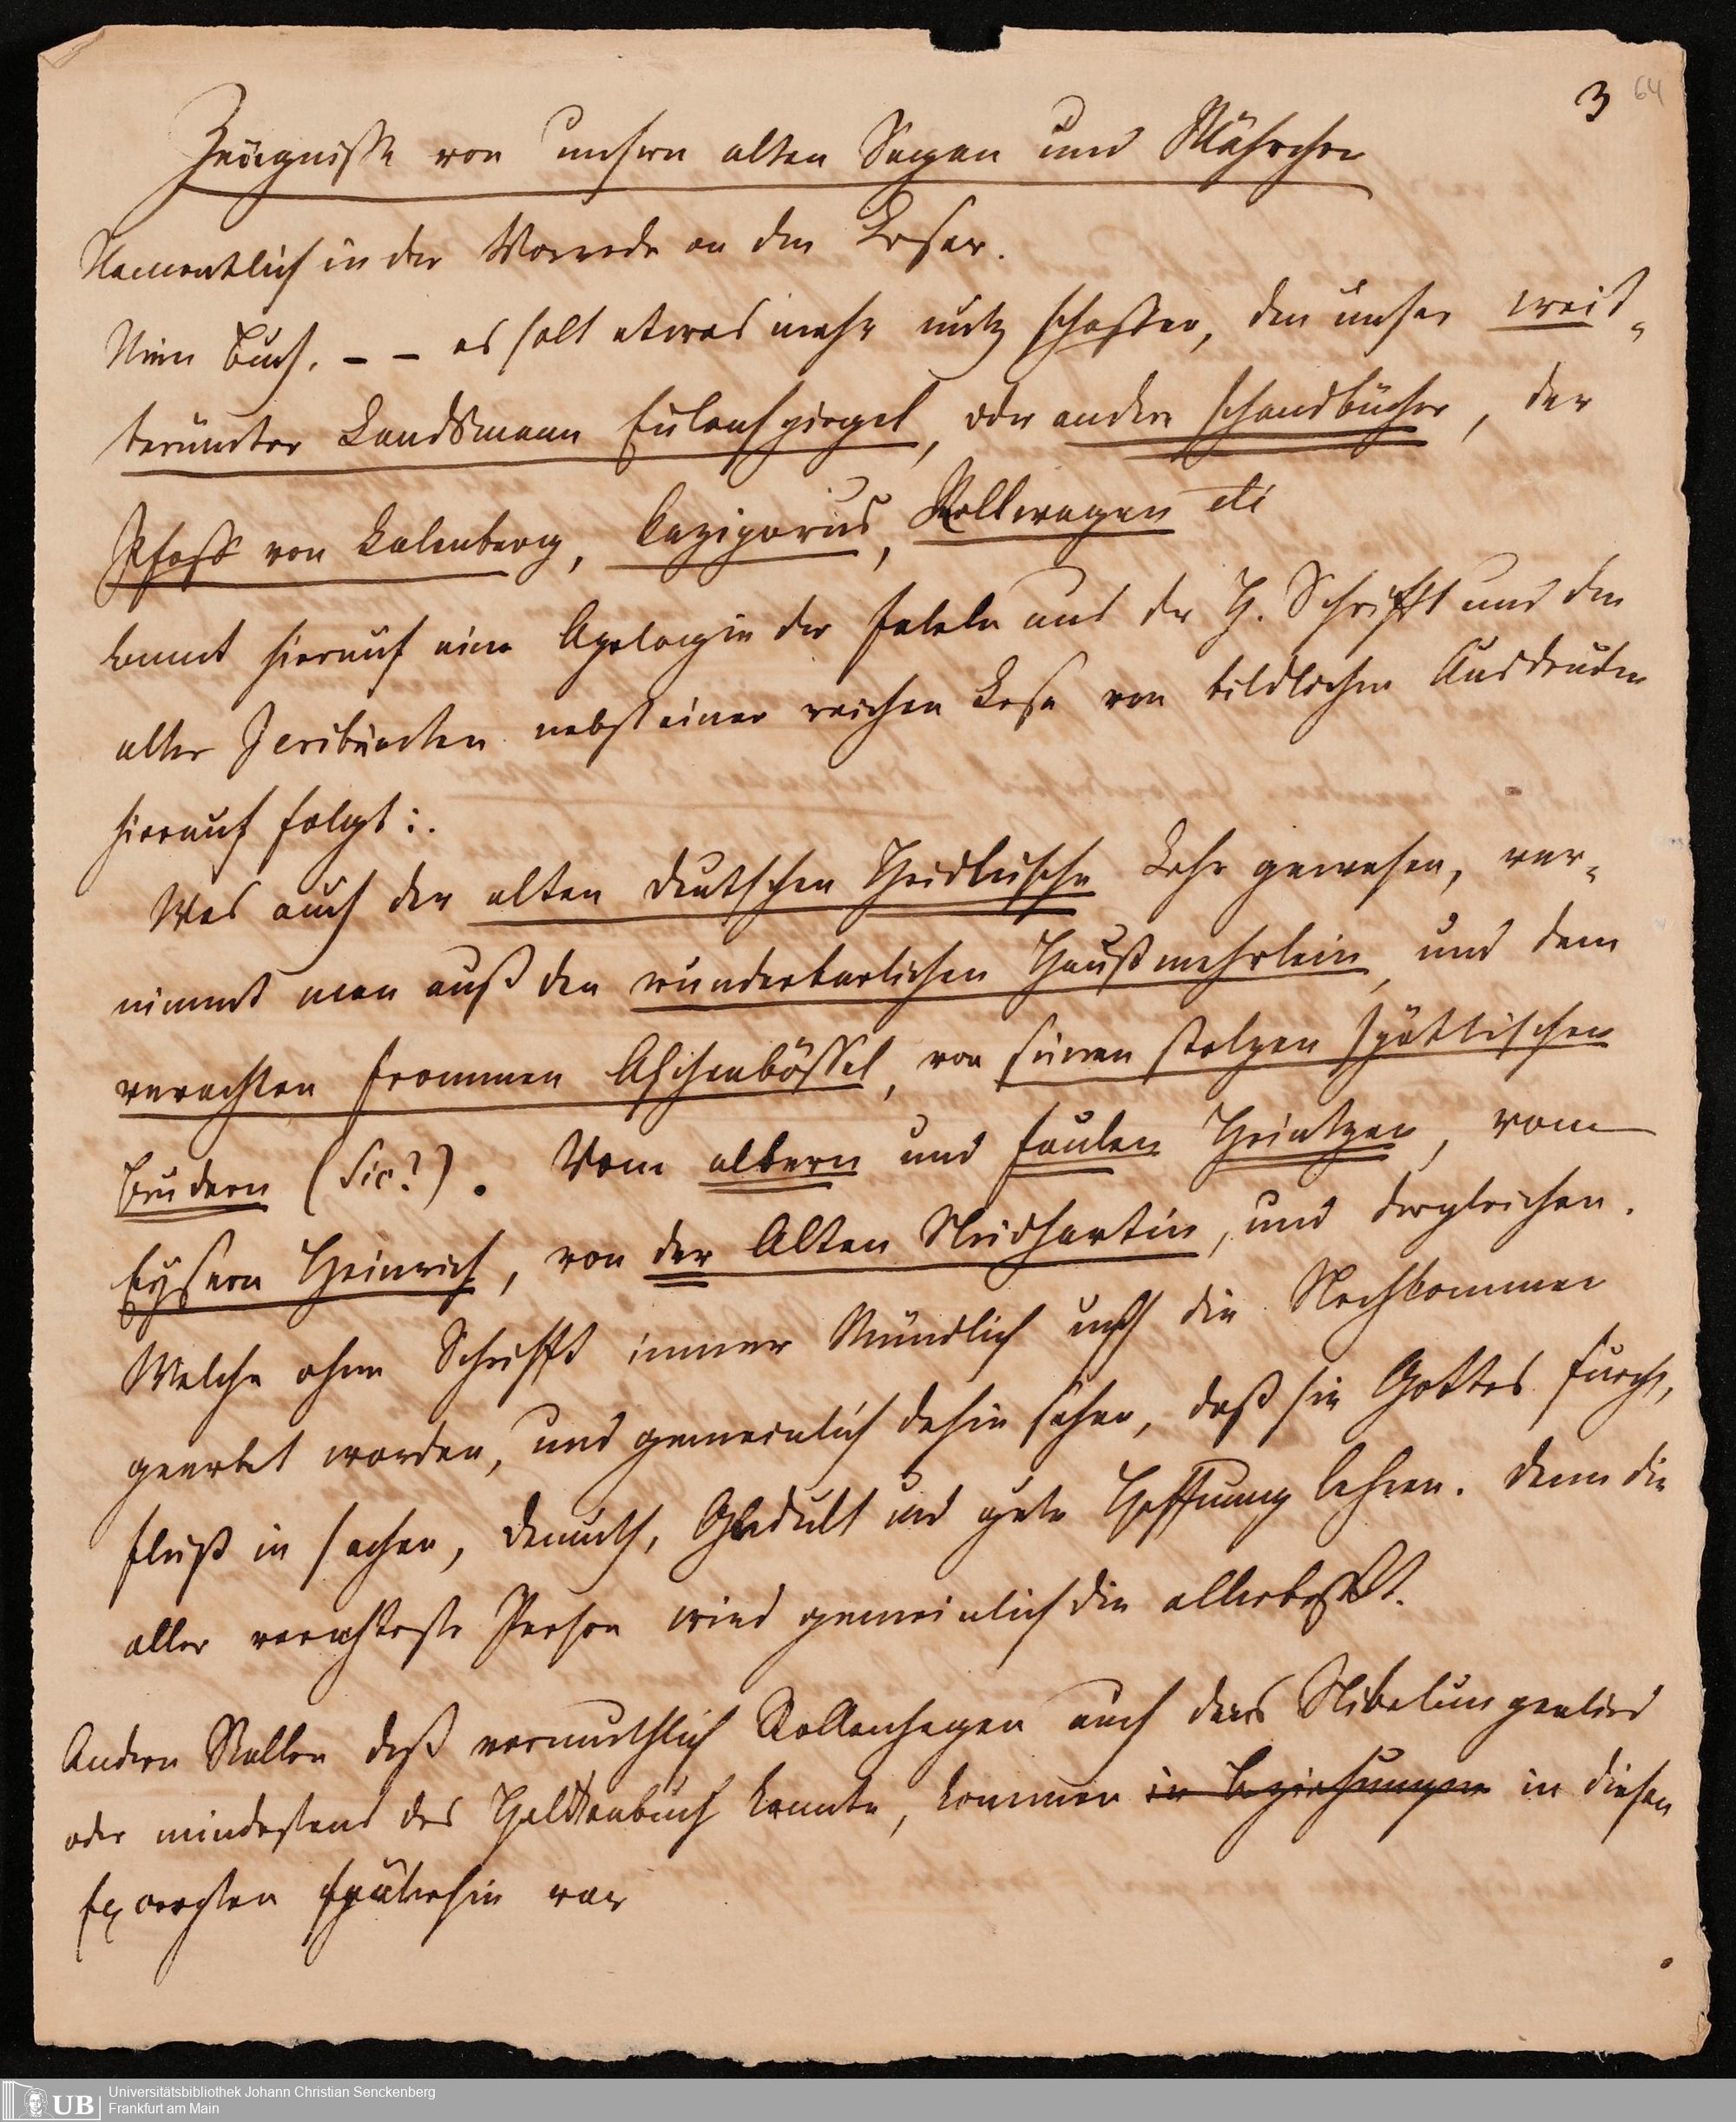 3 64
Zeügnisse von unsern alten Sagen und Mährchen
Namentlich in der Vorrede an den Leser.
Mein Buch. – – es solt etwas mehr nutz schaffen, den unser weit-
berümbter Landßmann Eulenspiegel, oder andere schandbücher, der
Pfaff von Kalenberg, Caziporus, Rollwagen etc
komt hierauf eine Apologie der Fabeln aus der H. Schrifft und den
alten Scribenten nebst einer reichen Lese von bildlichen Ausdrücken
hierauf folgt:.
Was auch der alten deutschen Heidnische Lehr gewesen, ver-
nimmt man auß den wunderbarlichen Haußmehrlein, und dem
verachten frommen Aschenbössel, von seinen stolzen spöttischen
Brudern (Sic?). Vom albern und faulen Heintzen, vom
Eysern Heinrich, von der Alten Neidhartin, und dergleichen.
Welche ohne Schrifft immer Mündlich auff die Nachkommen
geerbet worden, und gemeinlich dahin sehen, daß sie Gottes furcht,
fleiß in sachen, demuth, Gedult und gute Hoffnung lehren. denn die
aller verachteste Person wird gemeinlich die allerbeste.
Andere Stellen daß vermuthlich Rollenhagen auch das Nibelungenlied
oder mindestens das Heldenbuch kannte, kommen in Beziehungen in diesen
Excerpten späterhin vor
Universitätsbibliothek Johann Christian Senckenberg
Frankfurt am Main
UB